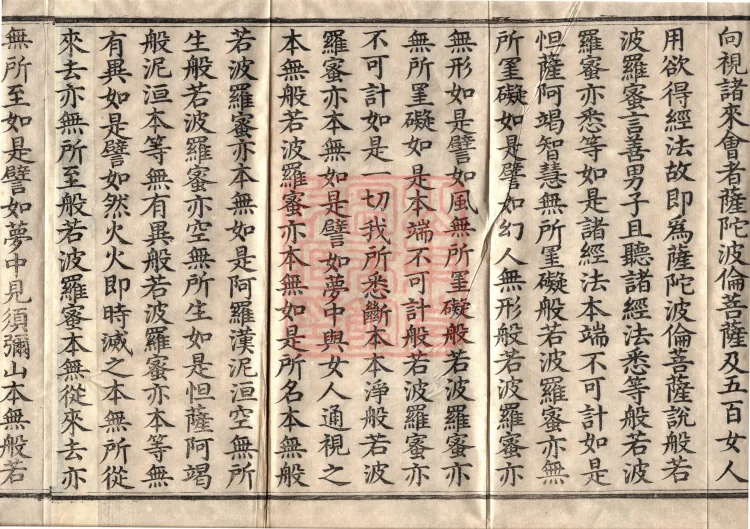 向視諸來會者薩陀波倫菩薩及五百女人
用欲得經法故即為薩陀波倫菩薩說般若
波羅蜜言善男子且聽諸經法悉等般若波
羅蜜亦悉等如是諸經法本端不可計如是
怛薩阿竭智慧無所罣礙般若波羅蜜亦無
所罣礙如是譬如幻人無形般若波羅蜜亦
無形如是譬如風無所罣礙般若波羅蜜亦
無所罣礙如是本端不可計般若波羅蜜亦
不可計如是一切我所悉斷本本淨般若波
羅蜜亦本無如是譬如夢中與女人通視之
本無般若波羅蜜亦本無如是所名本無般
若波羅蜜亦本無如是阿羅漢泥洹空無所
生般若波羅蜜亦空無所生如是怛薩阿竭
般泥洹本等無有異般若波羅蜜亦本等無
有異如是譬如然火火即時滅之本無所從
來去亦無所至般若波羅蜜本無從來去亦
無所至如是譬如夢中見須彌山本無般若